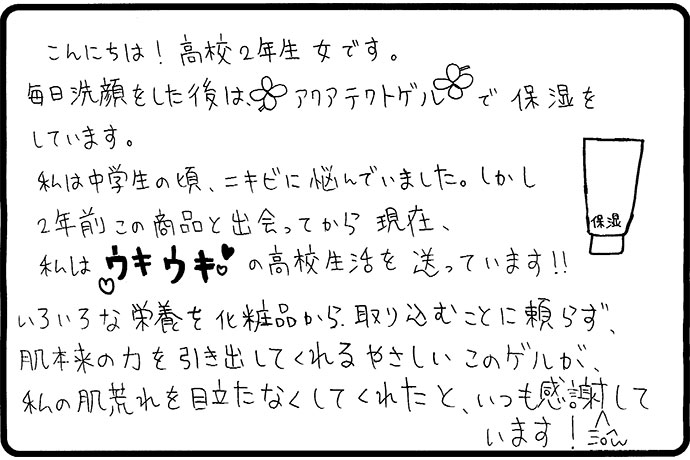 こんにちは!高校2年生女です。
毎日洗顔をした後は、アクアテクトゲルで保湿を
しています。
私は中学生の頃、ニキビに悩んでいました。しかし
2年前この商品と出会ってから現在、
保湿
私はウキウキの高校生活を送っています!!
いろいろな栄養を化粧品から取り込むことに頼らず、
肌本来の力を引き出してくれるやさしいこのゲルが、
私の肌荒れを目立たなくしてくれたと、いつも感謝して
います!